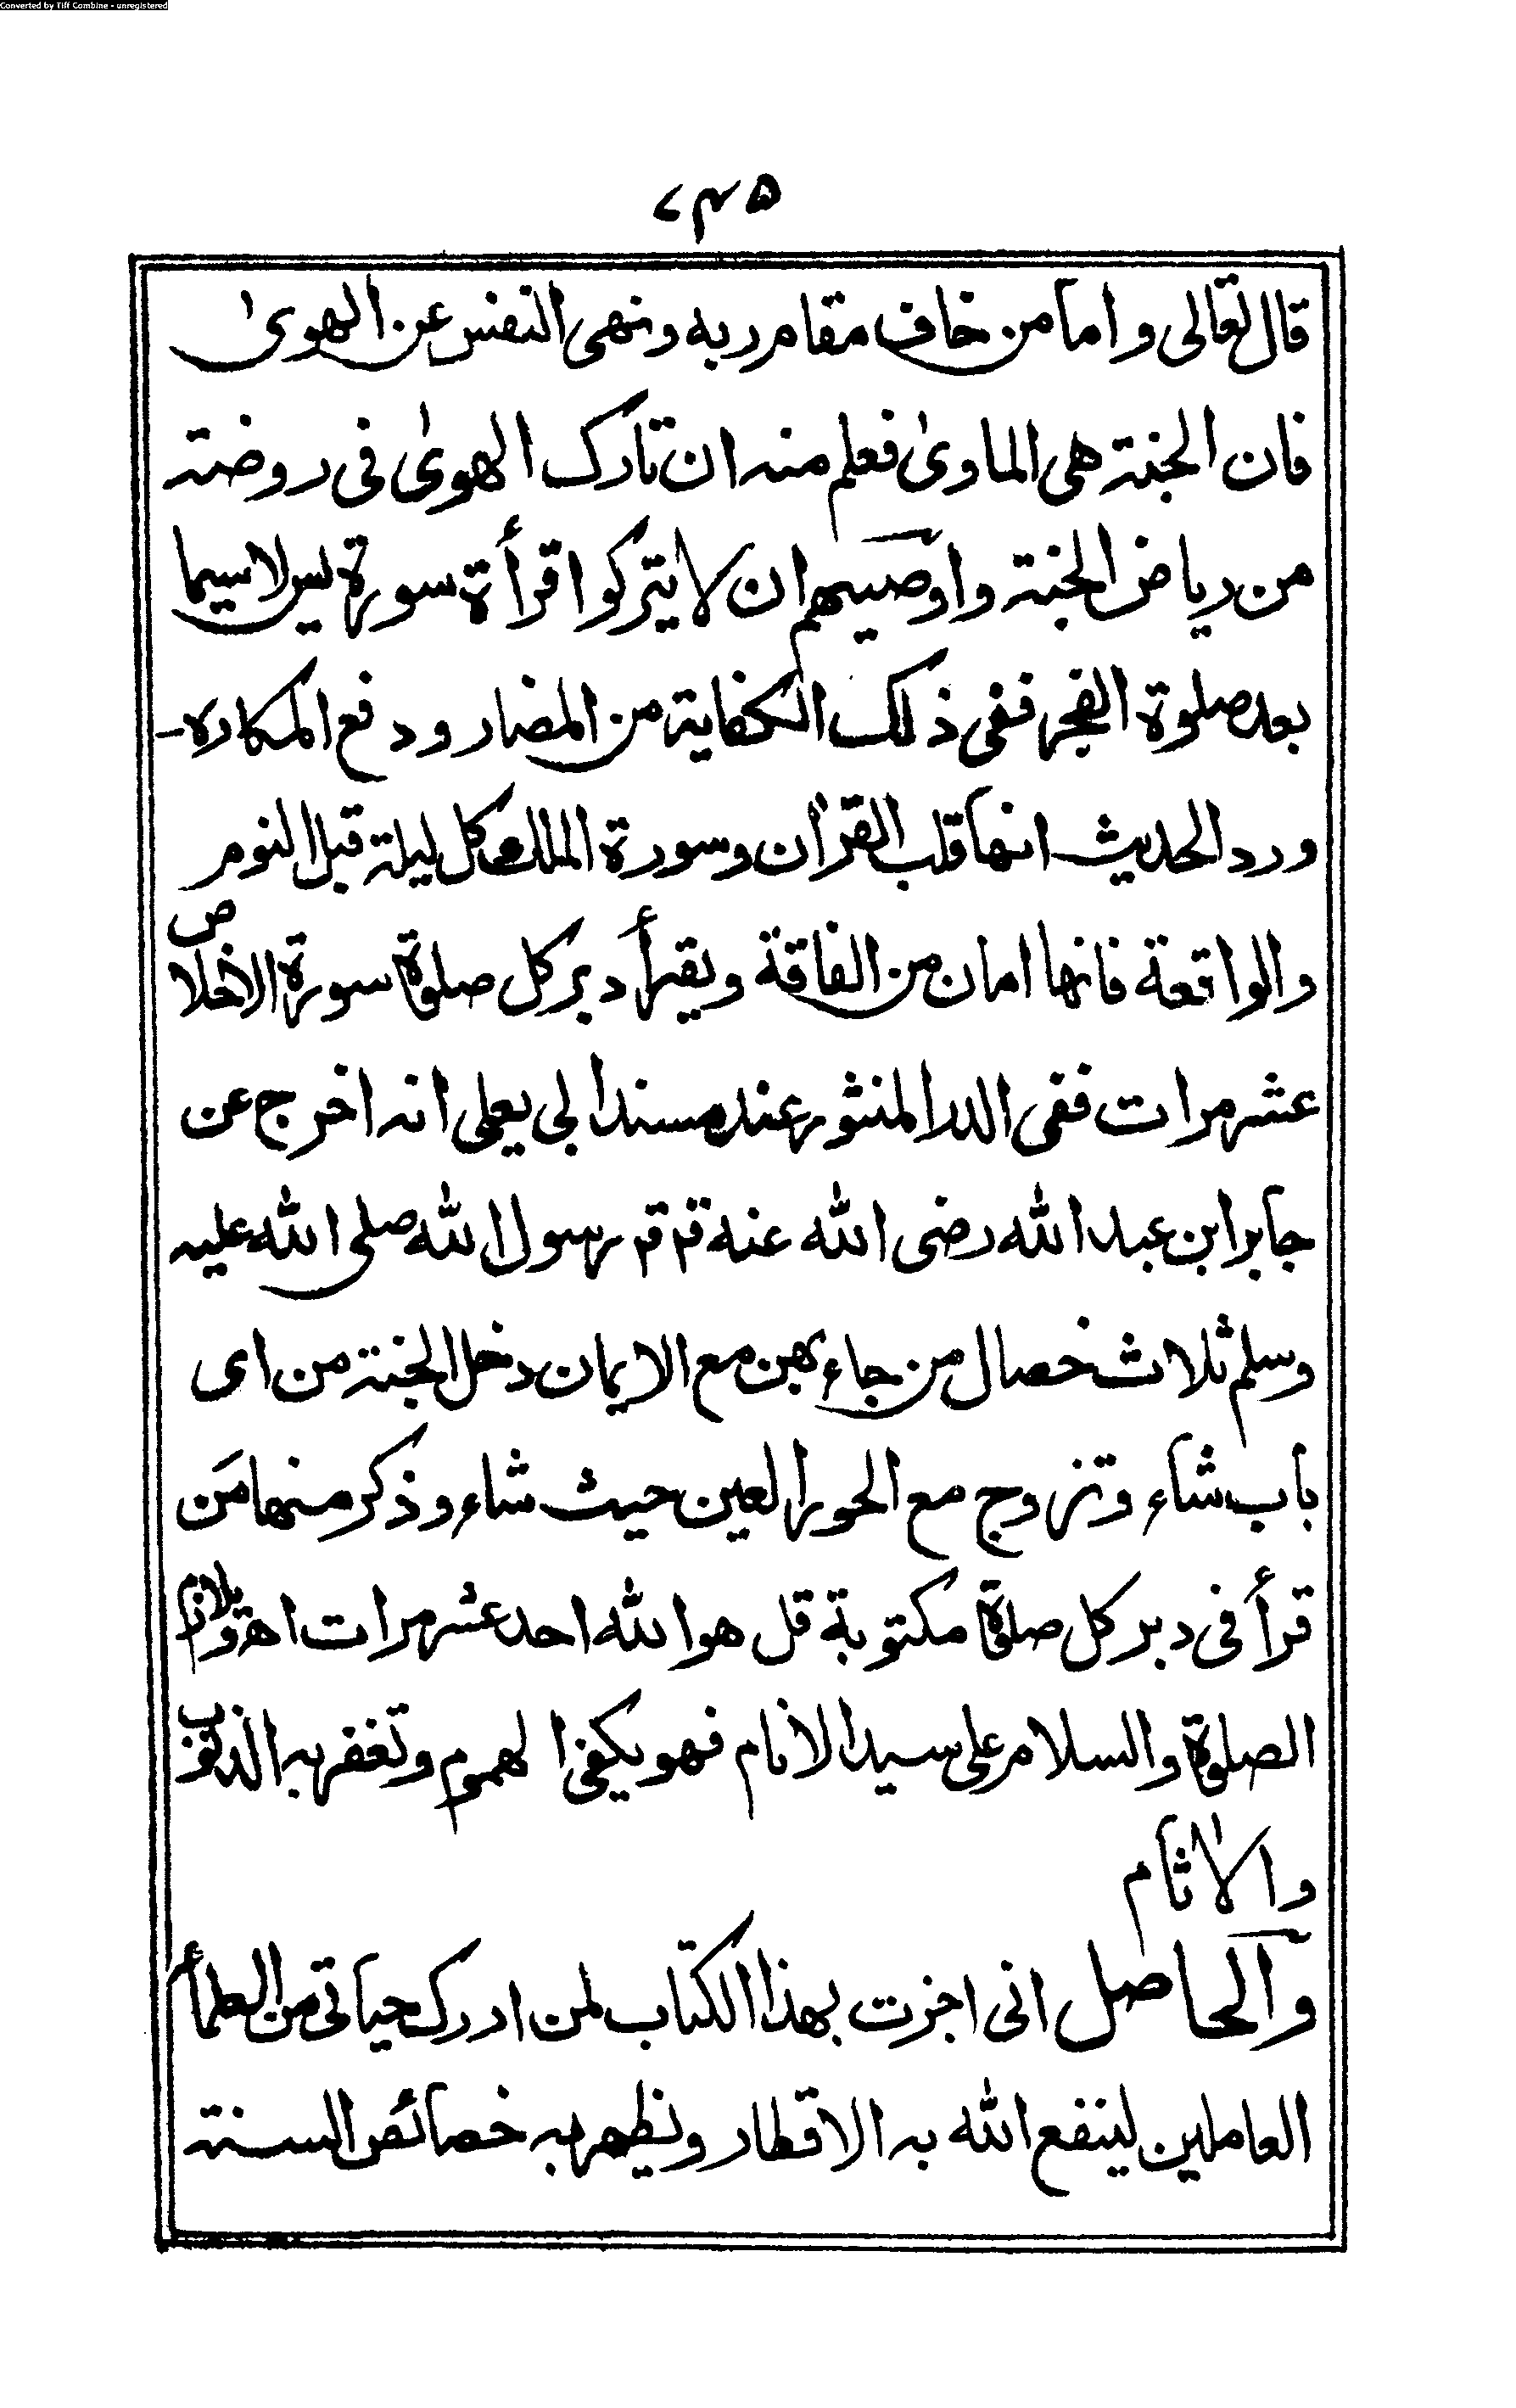 Converted by Tiff Combine - unregistered
قال تعالى واما من خاف مقام ربه ونهى النفس عن الهوىٰ
فان الجنة هى الماوىٰ فعلم منه ان تارك الهوىٰ فى روضة
من رياض الجنة واوصيهم ان لا يتركوا قرأة سورة يس لاسيما
بعد صلوة الفجر ففى ذلك الكفاية من المضار ودفع المكاره-
ورد الحديث انها قلب القرأن وسورة الملك كل ليلة قبل النوم
والواقعة فانها امان من الفاقة ويقرأ دبر كل صلوة سورة الاخلاص
عشر مرات ففى الدر المنثور عند مسند ابى يعلى انه اخرج عن
جابر ابن عبد الله رضى الله عنه قم قم رسول الله صلى الله عليه
وسلم ثلاث خصال من جاء بهن مع الايمان دخل الجنة من اى
باب شاء وتزوج مع الحور العين حيث شاء وذكر منها مَن
قرأ فى دبر كل صلوة مكتوبة قل هو الله احد عشر مرات اهـ ويلازم
الصلوة والسلام على سيد الانام فهو يكفى الهموم وتغفر به الذنوب
والاٰثام
والحاصل انى اجزت بهذا الكتاب لمن ادرك حياتى من العلماء
العاملين لينفع الله به الاقطار ونظهر به خصائص السنة